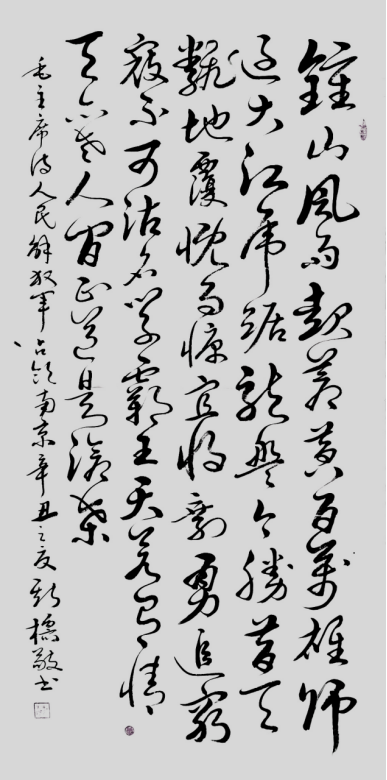 鐘山風雨起蒼黄百萬雄師
过大江虎踞龍盤今勝昔天
翻地覆慨而慷宜將剩勇追窮
寇不可沽名学霸王天若有情
天亦老人间正道是滄桑
毛主席诗人民解放军占领南京辛丑之夏標敬书